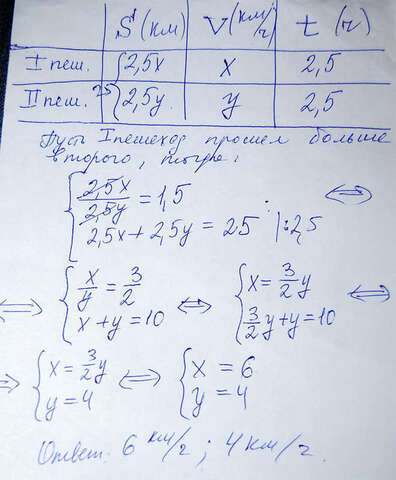 S (км) V (км/ч) t (ч)
I пеш. 2,5x x 2,5
II пеш. 25 2,5y y 2,5
Пусть I пешеход прошел больше
второго, тогда:
2,5x/2,5y = 1,5 ⇔
2,5x + 2,5y = 25 |:2,5
⇔ x/y = 3/2 ⇔ x = 3/2 y ⇔
x + y = 10 3/2 y + y = 10
⇒ x = 3/2 y ⇔ x = 6
y = 4 y = 4
Ответ: 6 км/ч; 4 км/ч.